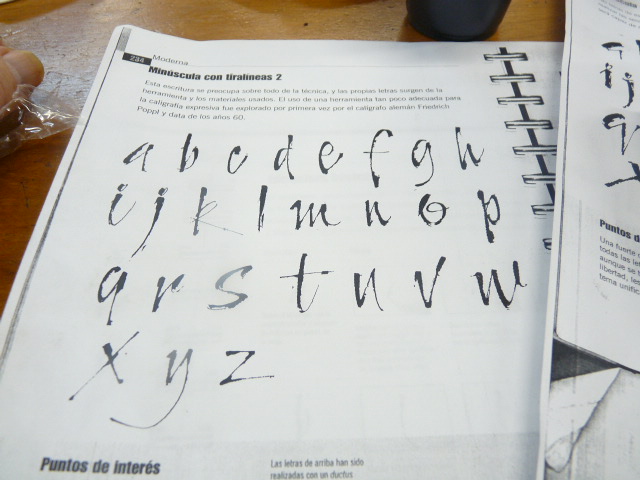 234 Moderna
Minúscula con tiralíneas 2
Esta escritura se preocupa sobre todo de la técnica, y las propias letras surgen de la
herramienta y los materiales usados. El uso de una herramienta tan poco adecuada para
la caligrafía expresiva fue explorado por primera vez por el calígrafo alemán Friedrich
Poppl y data de los años 60.
a b c d e f g h
i j k l m n o p
q r s t u v w
x y z
Puntos de interés
Las letras de arriba han sido
realizadas con un ductus
Puntos d
Una fuerte
todas las le
aunque se
libertad, les
tema unific